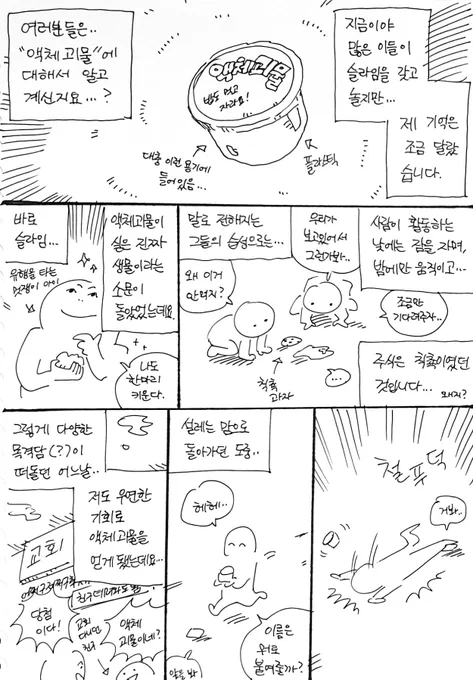 여러분들은..
"액체 괴물"에
대해서 알고
계신지요...?
액체괴물
밥도 먹고
자라요!
대충 이런 용기에
들어있음...
플라스틱
지금이야
많은 이들이
슬라임을 갖고
놀지만...
제 기억은
조금 달랐
습니다.
바로
슬라임...
유행을 타는
멋쟁이 아이
액체괴물이
실은 진짜
생물이라는
소문이
돌았었는데요.
나도
한마리
키운다.
말로 전해지는
그들의 습성으로는...
왜 이거
안먹지?
우리가
보고있어서
그런가봐..
칙촉
과자
사람이 활동하는
낮에는 잠을 자며,
밤에만 움직이고...
조금만
기다려주자..
주식은 칙촉이였던
것입니다...
왜지?
그렇게 다양한
목격담(?)이
떠돌던 어느날..
저도 우연한
기회로
액체괴물을
얻게 됐는데요...
교회
친구데려와도 됨
당첨
이다!
교회
다니던
친구
액체
괴물이네?
설레는 맘으로
돌아가던 도중..
헤헤..
이름은
뭐로
붙여줄까?
앞을 봐
철푸덕
거봐..